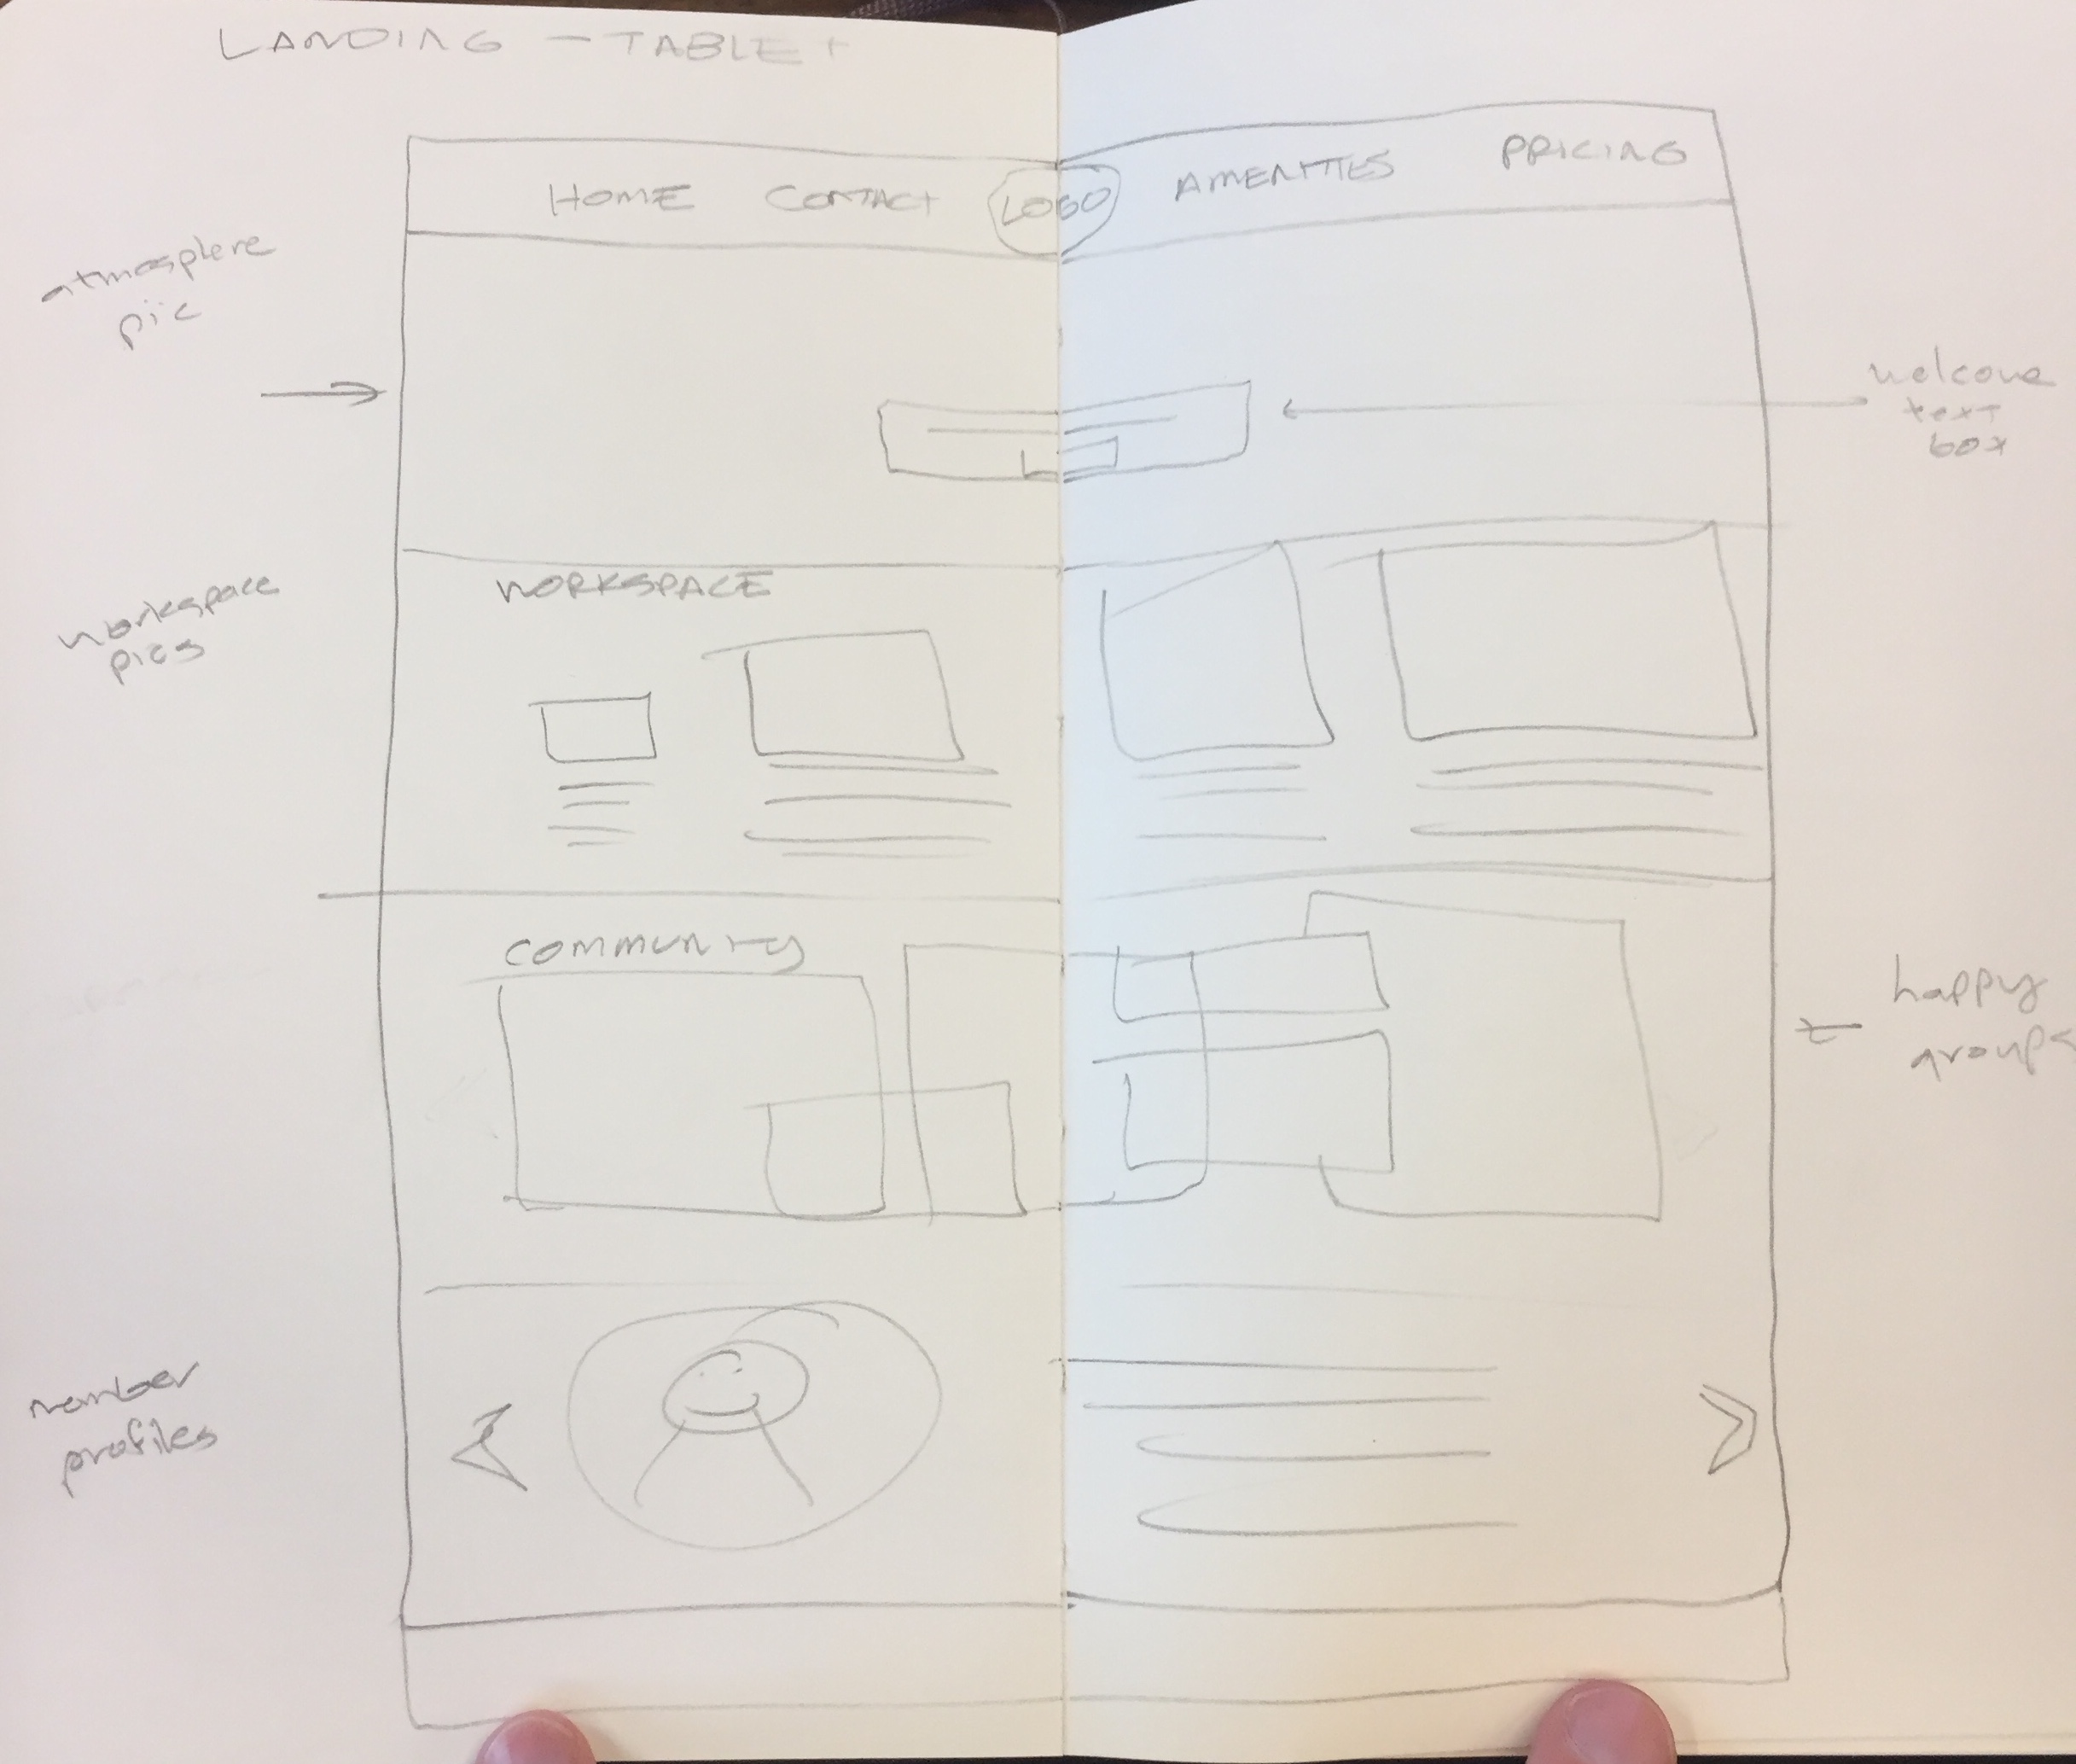 LANDING - TABLET
HOME CONTACT LOGO AMENITIES PRICING
atmosphere
pic
welcome
text
box
WORKSPACE
workspace
pics
COMMUNITY
happy
groups
member
profiles